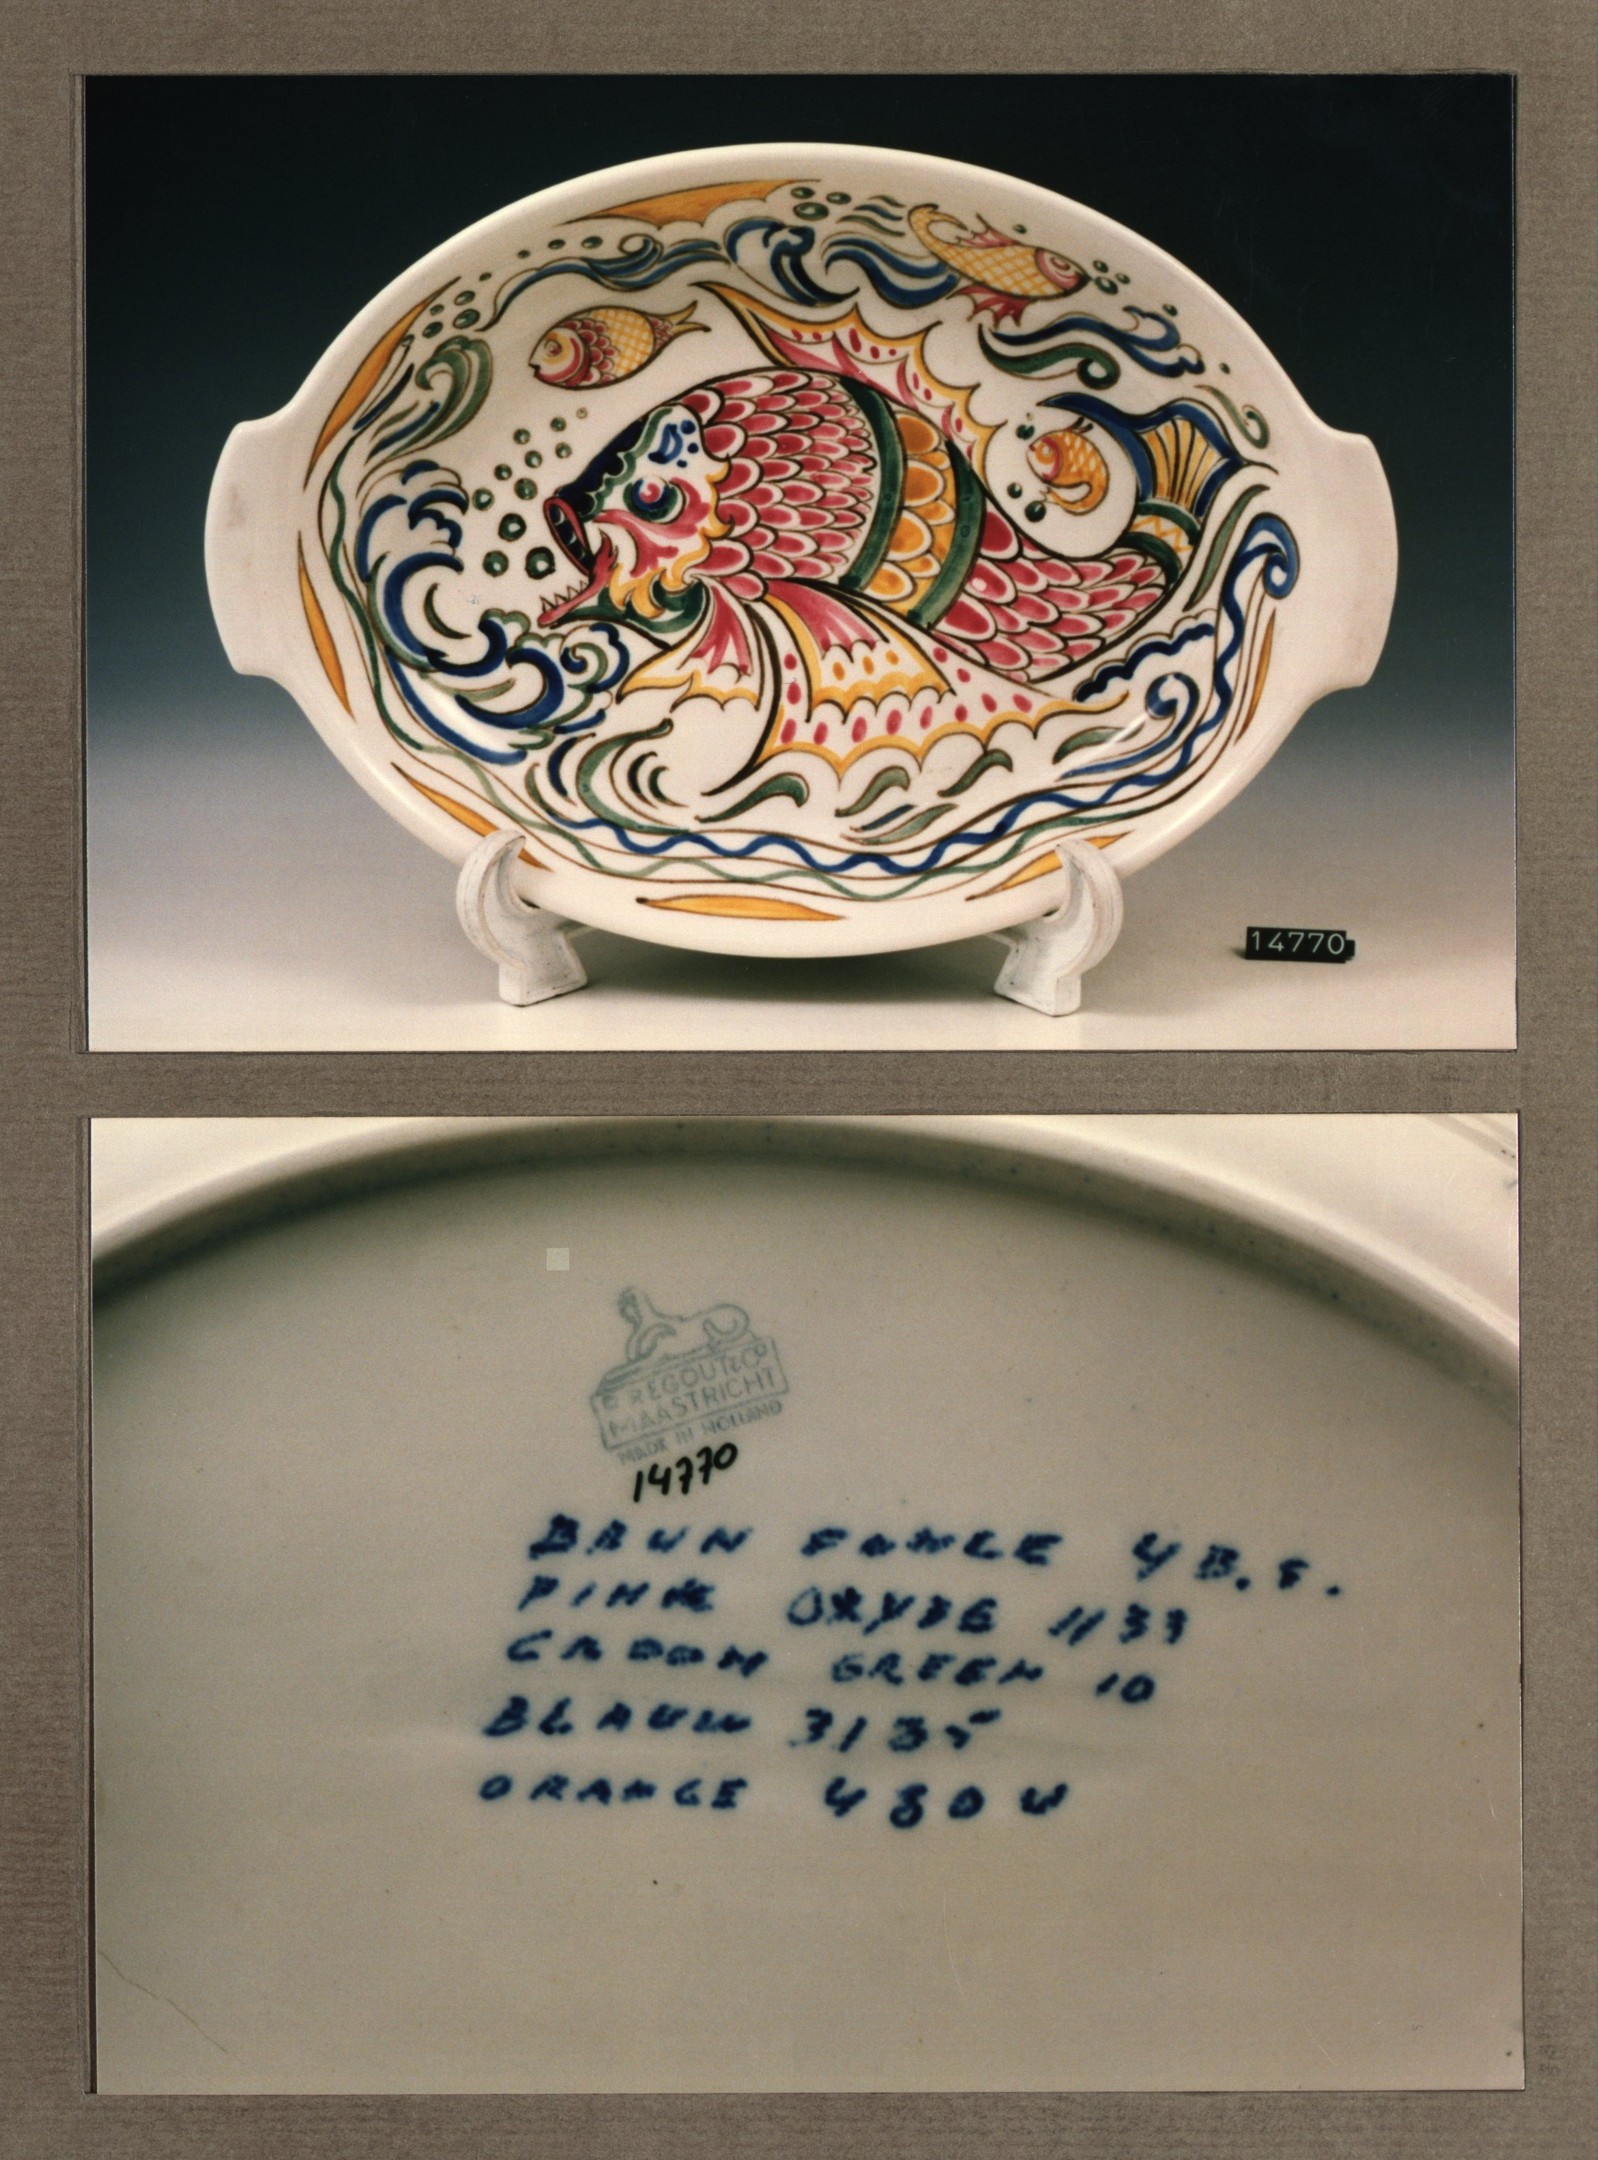 14770
P. REGOUT & Co
MAASTRICHT
MADE IN HOLLAND
14770
BRUN FONCE 4 B.F.
PINK OXYDE 1133
CROOM GREEN 10
BLAUW 3135
ORANGE 480 U